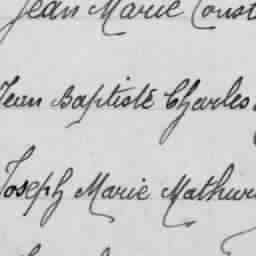 Jean Marie Const
Jean Baptiste Charles
Joseph Marie Mathuri